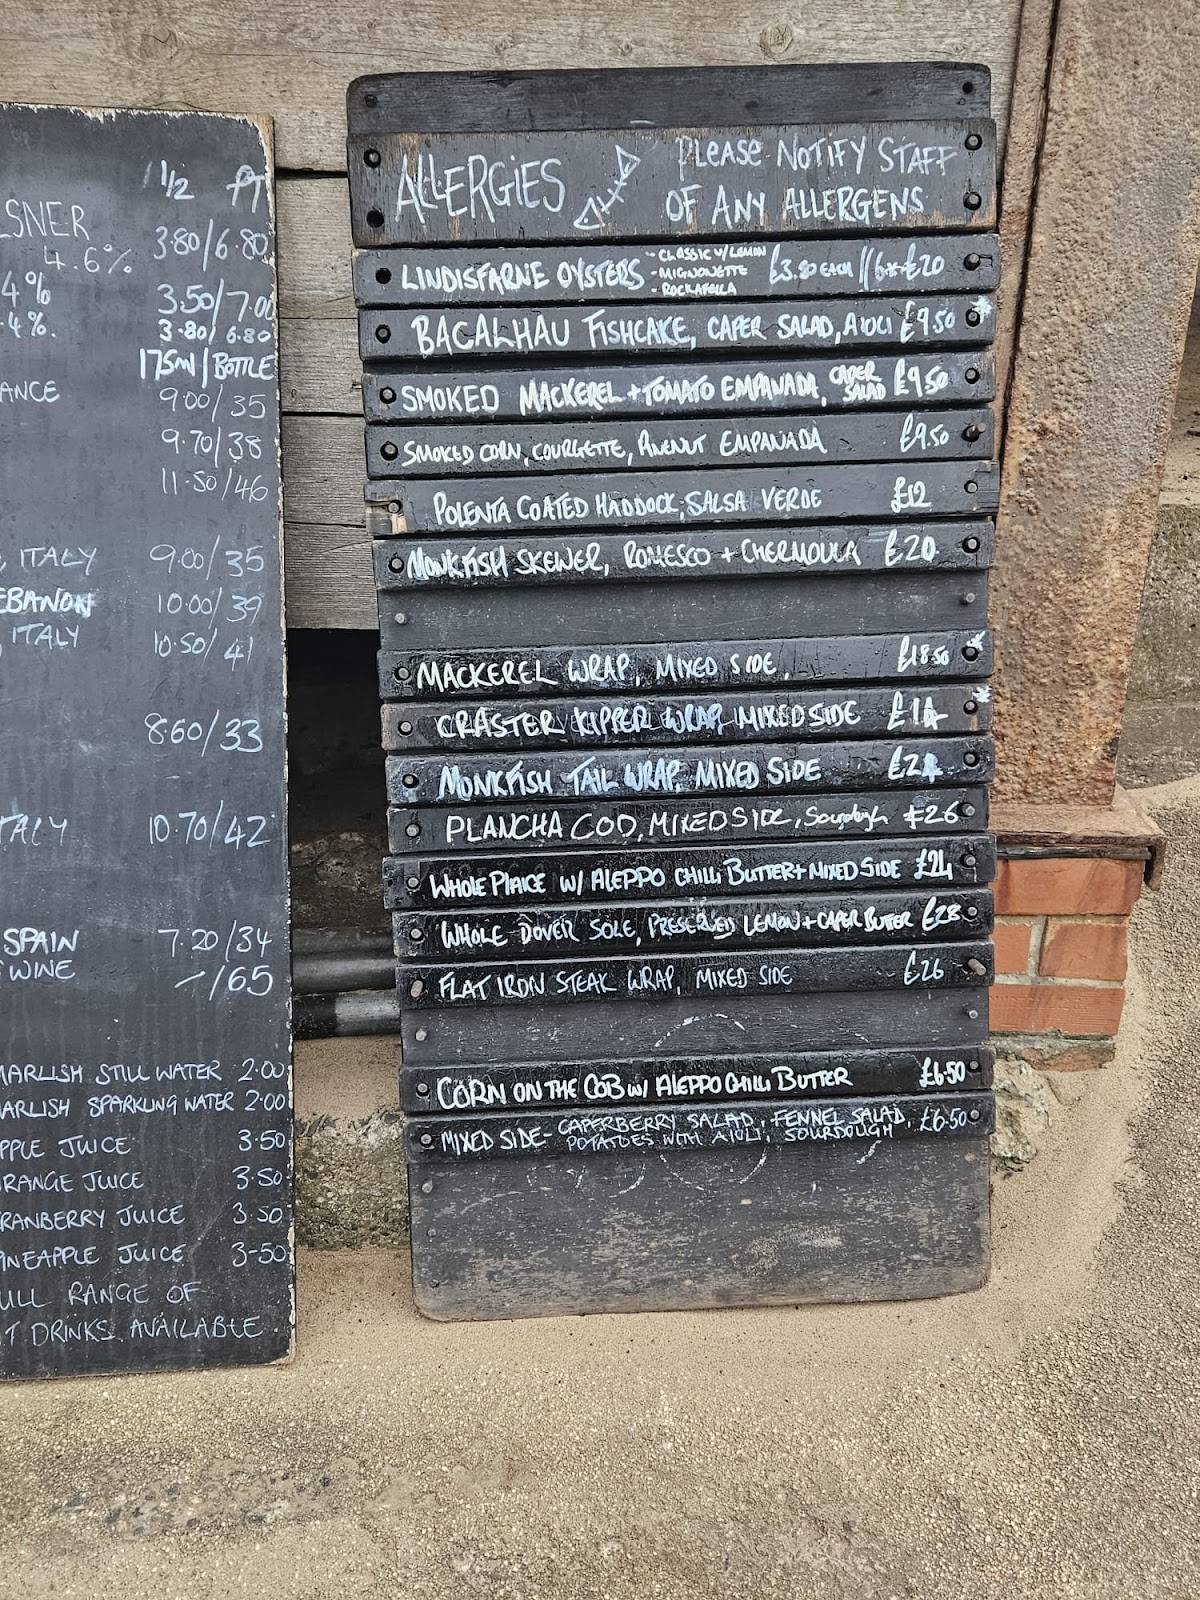 1/2 PT
LSNER
4.6% 3.80/6.80
4% 3.50/7.00
.4%. 3.80/6.80
175ml/BOTTLE
ANCE 9.00/35
9.70/38
11.50/46
, ITALY 9.00/35
EBANON 10.00/39
, ITALY 10.50/41
8.60/33
TALY 10.70/42
SPAIN 7.20/34
WINE -/65
MARLISH STILL WATER 2.00
ARLISH SPARKLING WATER 2.00
PPLE JUICE 3.50
RANGE JUICE 3.50
RANBERRY JUICE 3.50
INEAPPLE JUICE 3-50
ULL RANGE OF
T DRINKS AVAILABLE
ALLERGIES PLEASE NOTIFY STAFF
OF ANY ALLERGENS
LINDISFARNE OYSTERS - CLASSIC W/ LEMON
- MIGNONETTE
- ROCKAFELLA
£3.50 EACH // 6 £20
BACALHAU FISHCAKE, CAPER SALAD, AIOLI £9.50 *
SMOKED MACKEREL + TOMATO EMPANADA, CAPER SALAD £9.50
SMOKED CORN, COURGETTE, EMPANADA £9.50
POLENTA COATED HADDOCK, SALSA VERDE £12
MONKFISH SKEWER, ROMESCO + CHERMOULA £20
MACKEREL WRAP, MIXED SIDE, £18.50 *
CRASTER KIPPER WRAP, MIXED SIDE £14 *
MONKFISH TAIL WRAP, MIXED SIDE £24
PLANCHA COD, MIXED SIDE, Sourdough £26
WHOLE PLAICE W/ ALEPPO CHILLI BUTTER + MIXED SIDE £24
WHOLE DOVER SOLE, PRESERVED LEMON + CAPER BUTTER £28
FLAT IRON STEAK WRAP, MIXED SIDE £26
CORN ON THE COB W/ ALEPPO CHILLI BUTTER £6.50
MIXED SIDE - CAPERBERRY SALAD, FENNEL SALAD, £6.50
POTATOES WITH AIOLI, SOURDOUGH